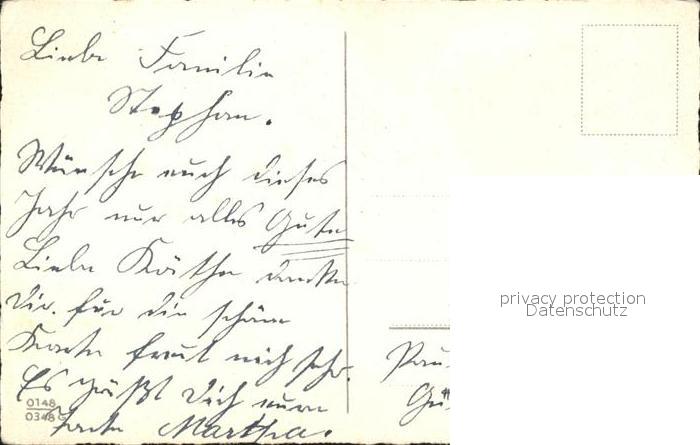 Liebe Familie
Stephan.
Wünsche euch dieses
Jahr nur alles Gute
Liebe Käthe danke
Dir. für die schöne
Karte freut mich sehr.
Es grüßt Dich eure
Tante Martha.
0148
0348 G
privacy protection
Datenschutz